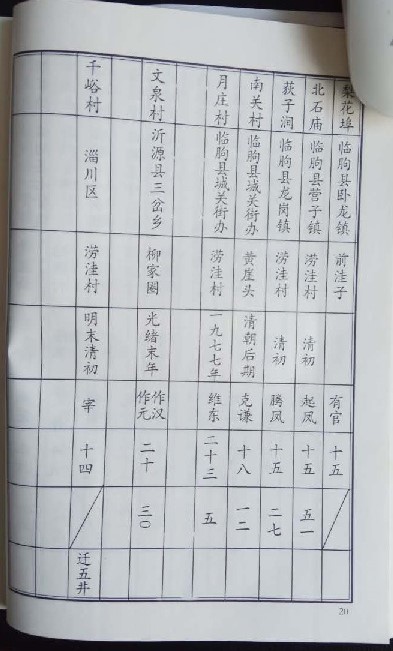 梨花埠 临朐县卧龙镇 前洼子 有官 十五
北石庙 临朐县营子镇 涝洼村 清初 起凤 十五 五一
荻子涧 临朐县龙岗镇 涝洼村 清初 腾凤 十五 二七
南关村 临朐县城关街办 黄崖头 清朝后期 克谦 十八 一二
月庄村 临朐县城关街办 涝洼村 一九七七年 维东 二十三 五
文泉村 沂源县三岔乡 柳家圈 光绪末年 作汉 作元 二十 三〇
千峪村 淄川区 涝洼村 明末清初 宰 十四 迁五井
20